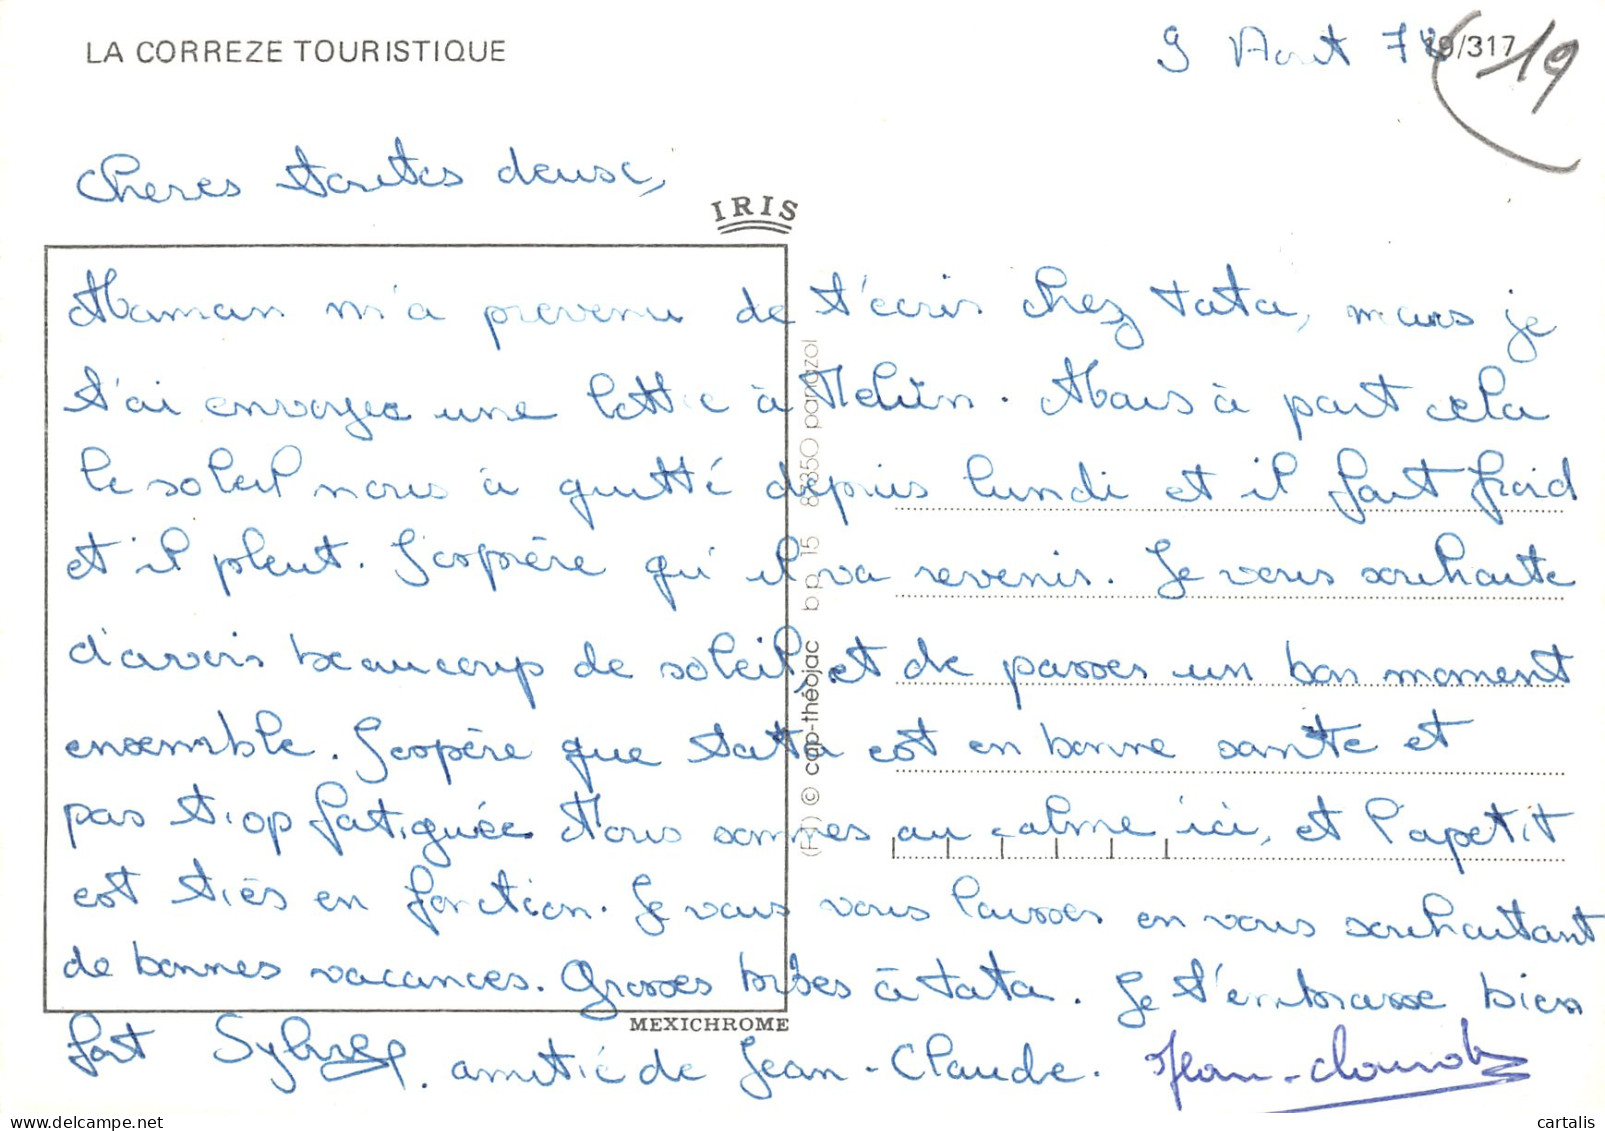 LA CORREZE TOURISTIQUE
9 Aout 78 19/317 19
Cheres toutes deux,
IRIS
Maman m'a prevenu de t'ecrir chez tata, mais je
t'ai envoyee une lettre à Mehun. Mais à part cela
le soleil nous à quitté depuis lundi et il fait froid
et il pleut. J'espère qu'il va revenir. Je vous souhaite
d'avoir beaucoup de soleil, et de passer un bon moment
ensemble. J'espère que tata est en bonne sante et
pas trop fatiguée. Nous sommes au calme ici, et l'apetit
est très en fonction. Je vous vous laisser en vous souhaitant
de bonnes vacances. Grosses bises à tata. Je t'embrasse bien
MEXICHROME
fort Sylvie. amitié de Jean-Claude. Jean-claude
(FR) © cap-théojac bp 15 87350 panazol
cartalis